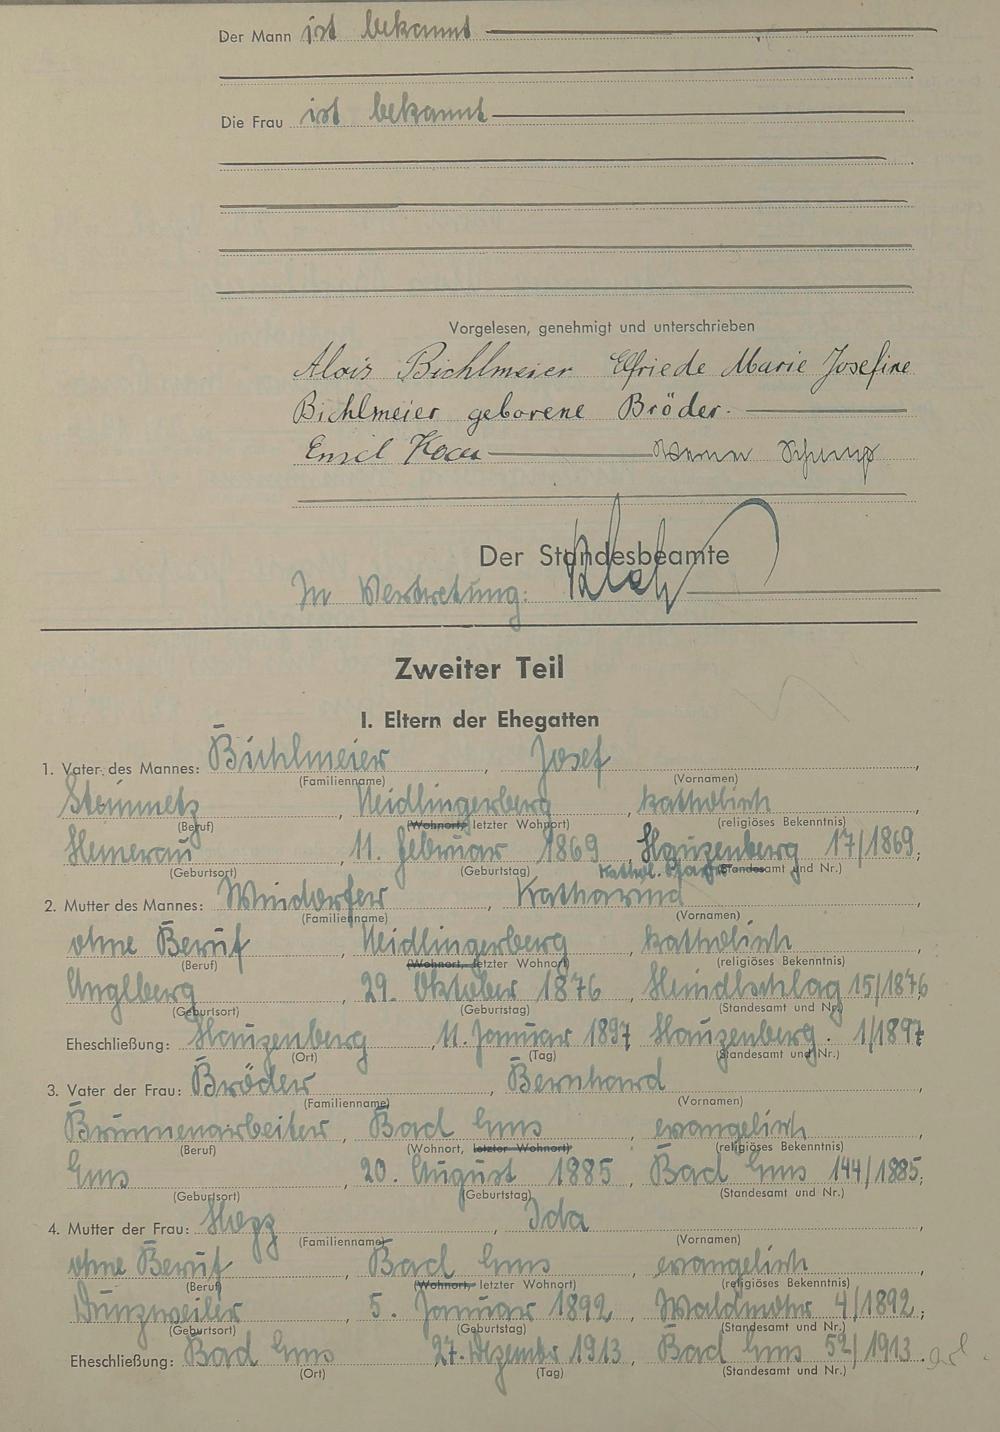 Der Mann ist bekannt
Die Frau ist bekannt
Vorgelesen, genehmigt und unterschrieben
Alois Bichlmeier Elfriede Marie Josefine
Bichlmeier geborene Bröder.
Emil Werner
Der Standesbeamte
In Vertretung:
Zweiter Teil
I. Eltern der Ehegatten
1. Vater des Mannes: Bichlmeier, Josef,
(Familienname) (Vornamen)
Steinmetz, Neidlingerberg, katholisch
(Beruf) (Wohnort, letzter Wohnort) (religiöses Bekenntnis)
Hemerau, 11. Februar 1869, Hauzenberg 17/1869;
(Geburtsort) (Geburtstag) kathol. Pfarr (Standesamt und Nr.)
2. Mutter des Mannes: Windorfer, Katharina,
(Familienname) (Vornamen)
ohne Beruf, Neidlingerberg, katholisch,
(Beruf) (Wohnort, letzter Wohnort) (religiöses Bekenntnis)
Anglberg, 29. Oktober 1876, Heindlschlag 15/1876
(Geburtsort) (Geburtstag) (Standesamt und Nr.)
Eheschließung: Hauzenberg, 11. Januar 1897, Hauzenberg. 1/1897
(Ort) (Tag) (Standesamt und Nr.)
3. Vater der Frau: Bröder, Bernhard,
(Familienname) (Vornamen)
Brunnenarbeiter, Bad Ems, evangelisch,
(Beruf) (Wohnort, letzter Wohnort) (religiöses Bekenntnis)
Ems, 20. August 1885, Bad Ems 144/1885;
(Geburtsort) (Geburtstag) (Standesamt und Nr.)
4. Mutter der Frau: Ida,
(Familienname) (Vornamen)
ohne Beruf, Bad Ems, evangelisch,
(Beruf) (Wohnort, letzter Wohnort) (religiöses Bekenntnis)
Dunzweiler, 5. Januar 1892, Waldmohr 4/1892;
(Geburtsort) (Geburtstag) (Standesamt und Nr.)
Eheschließung: Bad Ems 27. Dezember 1913, Bad Ems 52/1913.
(Ort) (Tag) (Standesamt und Nr.)